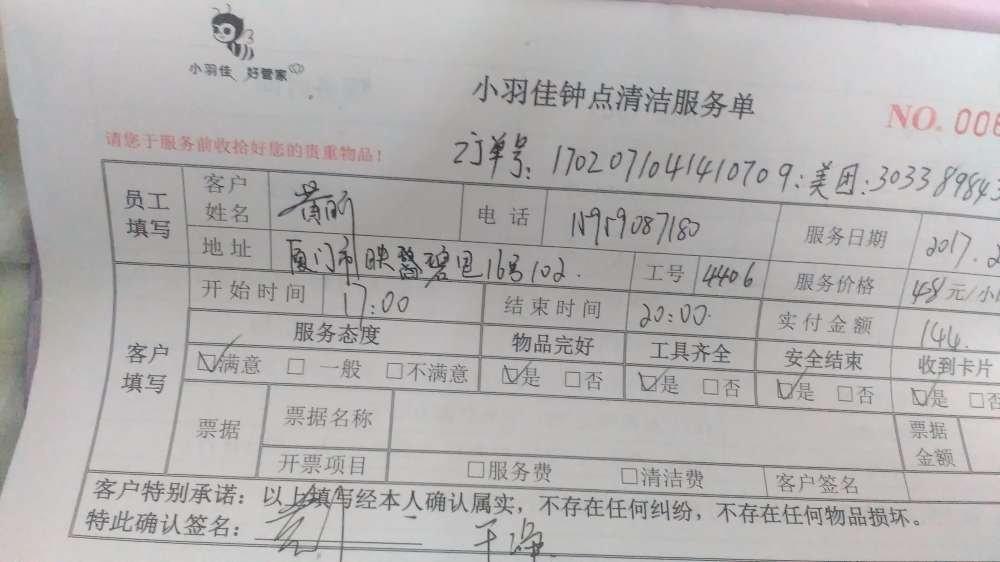 小羽佳 好管家
小羽佳钟点清洁服务单
NO. 006
请您于服务前收拾好您的贵重物品!
订单号: 1702071041410709: 美团: 303389843
员工填写 客户姓名 黄昕 电话 15959087180 服务日期 2017.2
地址 厦门市映翡碧里16号102. 工号 4406 服务价格 48元/小
客户填写 开始时间 17:00 结束时间 20:00 实付金额 144.
服务态度 物品完好 工具齐全 安全结束 收到卡片
☑满意 □一般 □不满意 ☑是 □否 ☑是 □否 ☑是 □否 ☑是 □否
票据 票据名称 票据金额
开票项目 □服务费 □清洁费 客户签名
客户特别承诺:以上填写经本人确认属实,不存在任何纠纷,不存在任何物品损坏。
特此确认签名: 干净